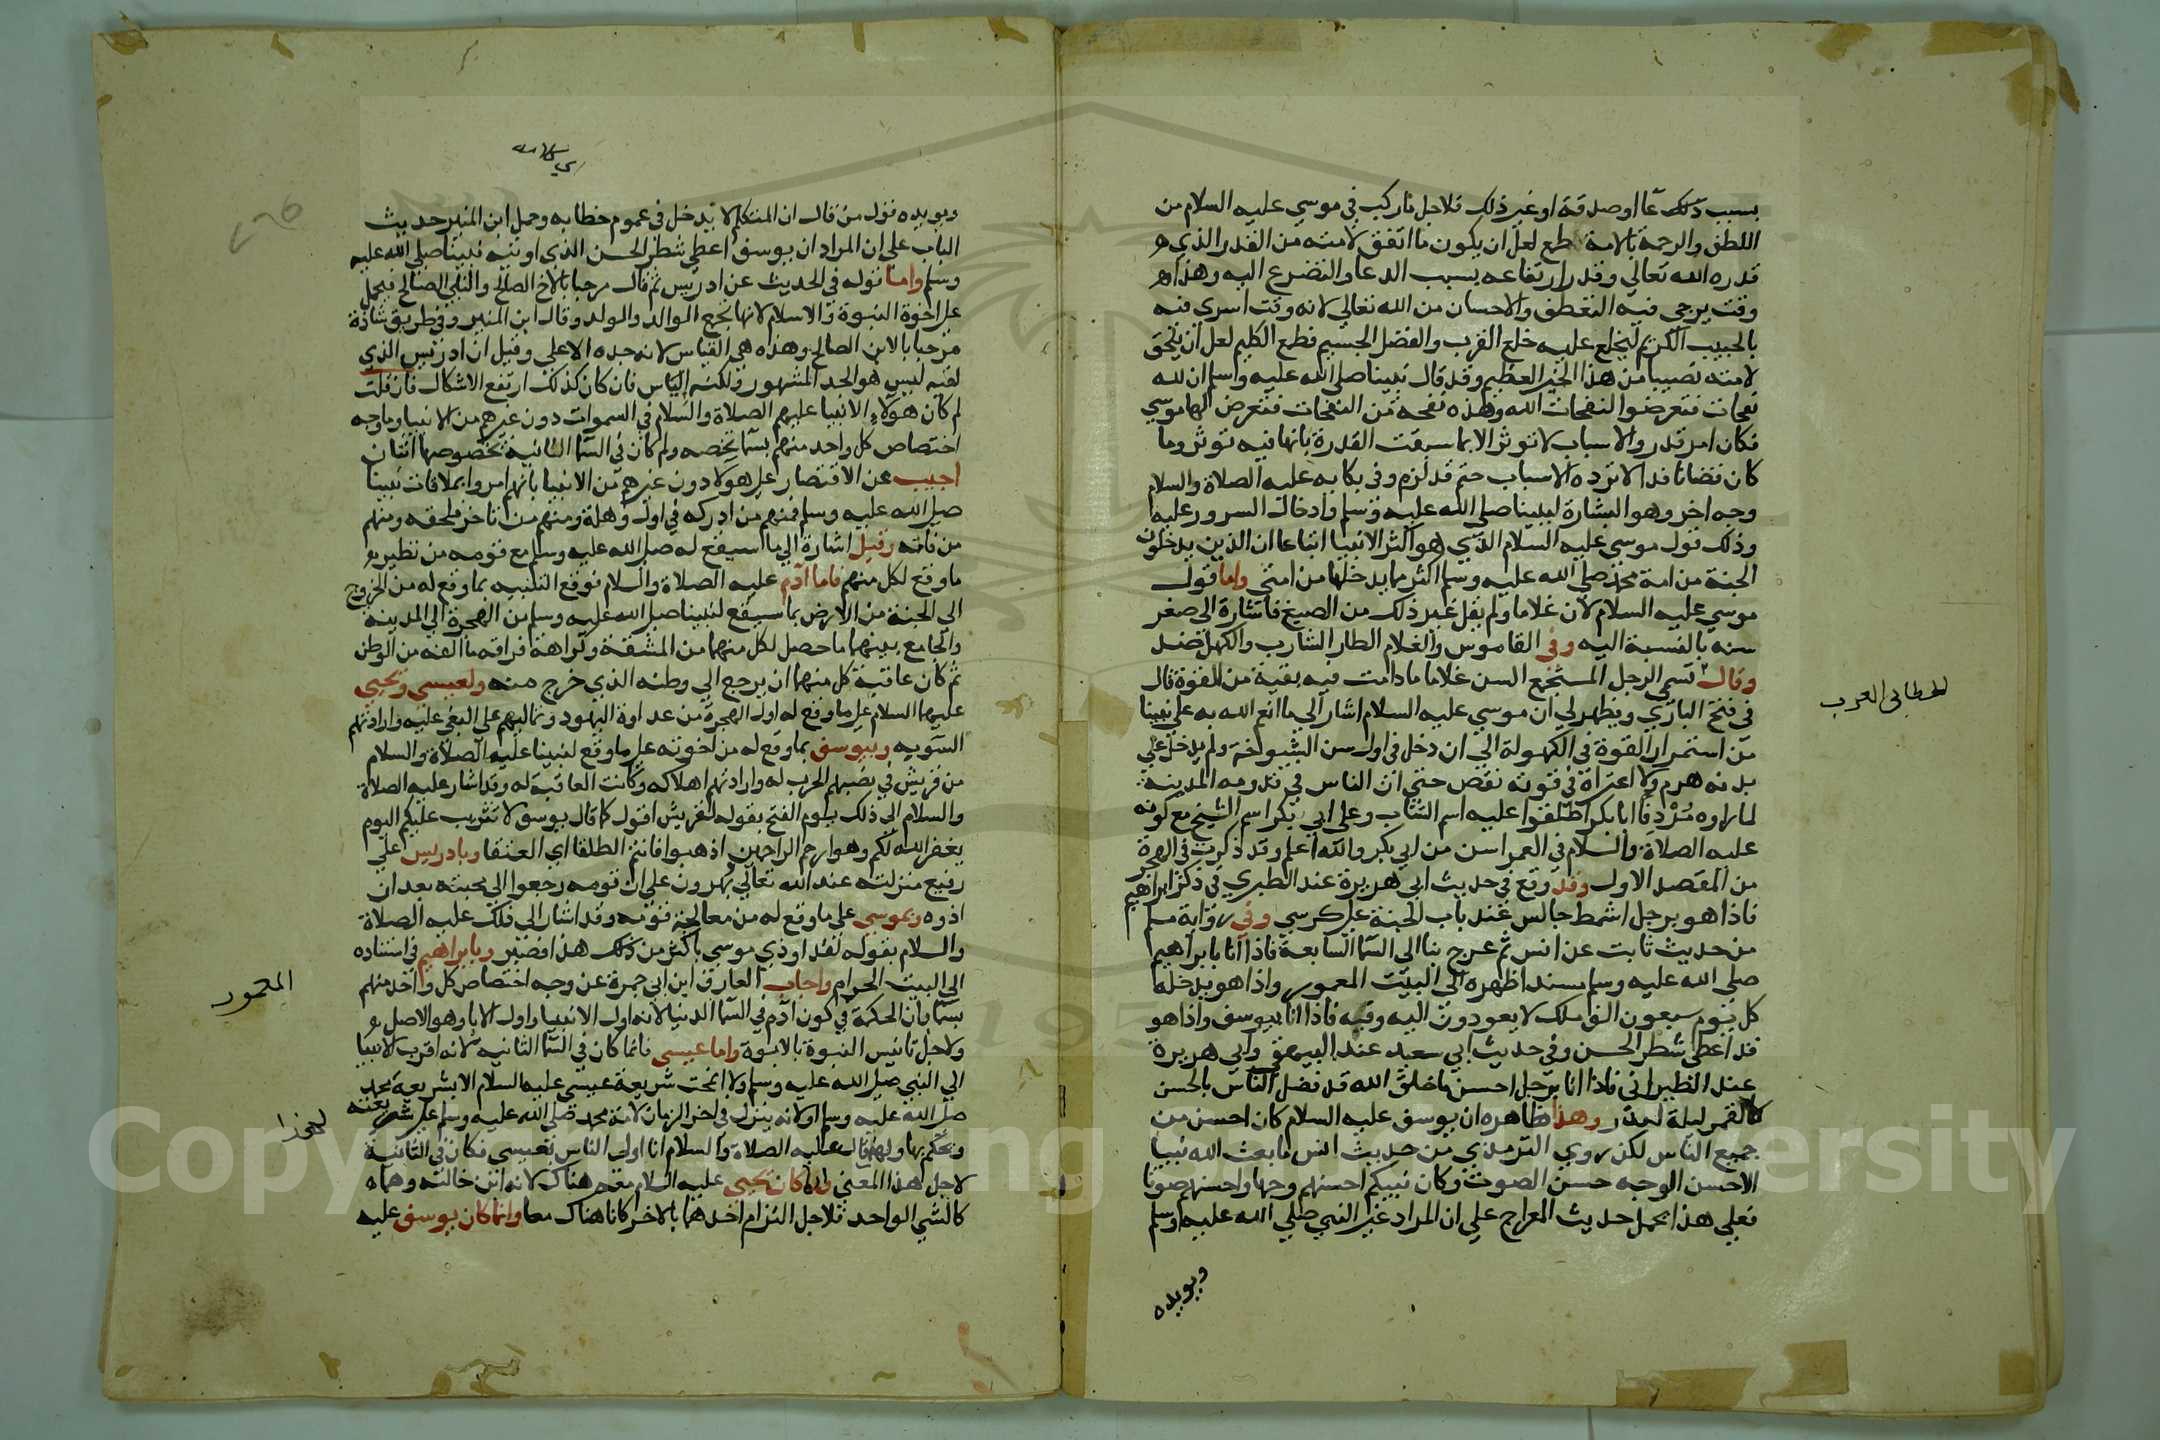 بسبب ذلك دعا او صدقة او غير ذلك فلاجل ما ركب في موسي عليه السلام من
اللطف والرحمة بالامة طمع لعل ان يكون ما اتفق لامته من القدر الذي
قدره الله تعالي وقدر ارتفاعه بسبب الدعا والتضرع اليه وهذا
وقت يرجي فيه التعطف والاحسان من الله تعالي لانه وقت اسري فيه
بالحبيب الكريم ليخلع عليه خلع القرب والفضل الجسيم فطمع الكليم لعل ان يلحق
لامته نصيبا من هذا الخير العظيم وقد قال نبينا صلي الله عليه وسلم ان لله
نفحات فتعرضوا النفحات الله وهذه نفحة من النفحات فتعرض لها موسي
فكان امر قدر والاسباب لا توثر الا بما سبقت القدرة بانها فيه توثر وما
كان قضا نافدا لا ترده الاسباب حتم قد لزم وفي بكايه عليه الصلاة والسلام
وجه اخر وهو البشارة لنبينا صلي الله عليه وسلم وادخال السرور عليه
وذلك قول موسي عليه السلام الذي هو اكثر الانبيا اتباعا ان الذين يدخلون
الجنة من امة محمد صلي الله عليه وسلم اكثر مما يدخلها من امتي واما قول
موسي عليه السلام لان غلاما ولم يقل غير ذلك من الصيغ فاشارة الي صغر
سنه بالنسبة اليه وفي القاموس والغلام الطار الشارب والكهل ضد
وقال تسمي الرجل المستجمع السن غلاما ما دامت فيه بقية من القوة قال
الخطابي العرب
في فتح الباري ويظهر لي ان موسي عليه السلام اشار الي ما انعم الله به علي نبينا
من استمرار القوة في الكهولة الي ان دخل في اول سن الشيوخة ولم يدخل علي
بدنه هرم ولا اعتراه في قوته نقص حتي ان الناس في قدومه المدينة
لما راوه مردفا ابا بكر اطلقوا عليه اسم الشاب وعلي ابي بكر اسم الشيخ مع كونه
عليه الصلاة والسلام في العمر اسن من ابي بكر والله اعلم وقد ذكرت في الهجرة
من المقصد الاول وقد وقع في حديث ابي هريرة عند الطبري في ذكر ابراهيم
فاذا هو برجل اشمط جالس عند باب الجنة علي كرسي وفي رواية مسلم
من حديث ثابت عن انس ثم عرج بنا الي السما السابعة فاذا انا بابراهيم
صلي الله عليه وسلم مسندا ظهره الي البيت المعمور واذا هو يدخله
كل يوم سبعون الف ملك لا يعودون اليه وفيه فاذا انا بيوسف واذا هو
قد اعطي شطر الحسن وفي حديث ابي سعيد عند البيهقي وابي هريرة
عند الطبراني فاذا انا برجل احسن ما خلق الله قد فضل الناس بالحسن
كالقمر ليلة البدر وهذا ظاهره ان يوسف عليه السلام كان احسن من
جميع الناس لكن روي الترمذي من حديث انس ما بعث الله نبيا
الا حسن الوجه حسن الصوت وكان نبيكم احسنهم وجها واحسنهم صوتا
فعلي هذا يحمل حديث المعراج علي ان المراد غير النبي صلي الله عليه وسلم
ويويده
ويويده قول من قال ان المتكلم لا يدخل في عموم خطابه وحمل ابن المنير حديث
الباب علي ان المراد ان يوسف اعطي شطر الحسن الذي اوتيه نبينا صلي الله عليه
وسلم واما قوله في الحديث عن ادريس ثم قال مرحبا بالاخ الصالح والنبي الصالح فيحمل
علي اخوة النبوة والاسلام لانها تجمع الوالد والولد وقال ابن المنير وفي طريق شاذة
مرحبا بالابن الصالح وهذه هي القياس لانه جده الاعلي وقيل ان ادريس الذي
لقيه ليس هو الجد المشهور ولكنه الياس فان كان كذلك ارتفع الاشكال فان قلت
لم كان هولاء الانبيا عليهم الصلاة والسلام في السموات دون غيرهم من الانبيا وما وجه
اختصاص كل واحد منهم بسما تخصه ولم كان في السما الثانية بخصوصها اثنان
اجيب عن الاقتصار علي هولا دون غيرهم من الانبيا بانهم امروا بملاقات نبينا
صلي الله عليه وسلم فمنهم من ادركه في اول وهلة ومنهم من تاخر فلحقه ومنهم
من فاته وقيل اشارة الي ما سيقع له صلي الله عليه وسلم مع قومه من نظير
ما وقع لكل منهم فاما ادم عليه الصلاة والسلام فوقع التنبيه بما وقع له من الخروج
الي الجنة من الارض بما سيقع لنبينا صلي الله عليه وسلم من الهجرة الي المدينة
والجامع بينهما ما حصل لكل منهما من المشقة وكراهة فراقه ما الفه من الوطن
ثم كان عاقبة كل منهما ان يرجع الي وطنه الذي خرج منه ولعيسي ويحيي
عليهما السلام علي ما وقع له اول الهجرة من عداوة اليهود وتماليهم علي البغي عليه وارادتهم
السو به وبيوسف بما وقع له من اخوته علي ما وقع لنبينا عليه الصلاة والسلام
من قريش في نصبهم الحرب له وارادتهم اهلاكه وكانت العاقبة له وقد اشار عليه الصلاة
والسلام الي ذلك يوم الفتح بقوله لقريش اقول كما قال يوسف لا تثريب عليكم اليوم
يغفر الله لكم وهو ارحم الراحمين اذهبوا فانتم الطلقا اي العتقا وبادريس علي
رفيع منزلته عند الله تعالي وبهرون علي ان قومه رجعوا الي محبته بعد ان
اذوه وبموسي علي ما وقع له من معالجة قومه وقد اشار الي ذلك عليه الصلاة
والسلام بقوله لقد اوذي موسي باكثر من ذلك هذا فصبر وبابراهيم في استناده
الي البيت الحرام واجاب العارف ابن ابي جمرة عن وجه اختصاص كل واحد منهم
المعمور
بسما بان الحكمة في كون ادم في السما الدنيا لانه اول الانبيا واول الابا وهو الاصل
ولاجل تانيس النبوة بالابوة واما عيسي فانما كان في السما الثانية لانه اقرب الانبيا
الي النبي صلي الله عليه وسلم ولا انمحت شريعة عيسي عليه السلام الا بشريعة محمد
صلي الله عليه وسلم ولانه ينزل في اخر الزمان لامة محمد صلي الله عليه وسلم علي شريعته
ويحكم بها ولهذا قال عليه الصلاة والسلام انا اولي الناس بعيسي فكان في الثانية
لاجل هذا المعني وانما كان يحيي عليه السلام معه هناك لانه ابن خالته وهما
كالشي الواحد فلاجل التزام احدهما بالاخر كانا هناك معا وانما كان يوسف عليه
Copyright © King Saud University
195